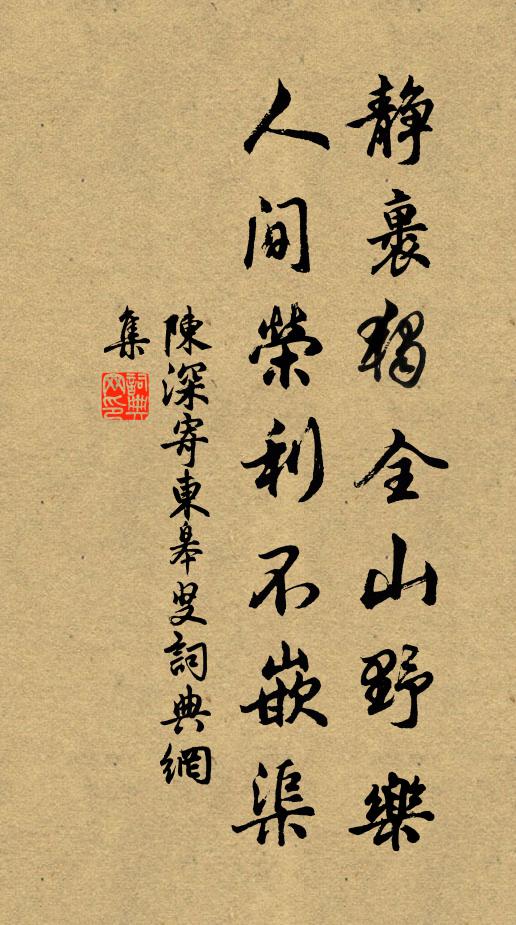 静裏獨全山野樂
人間榮利不嵌渠
陳深寄東皋叟詞典網
集
詞典
网印